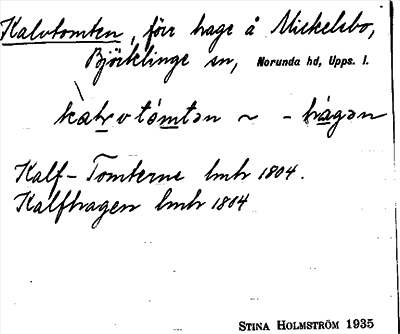 Kalvtomten, förr hage å Mickelsbo,
Björklinge sn, Norunda hd, Upps. l.
kàḷv tómtən ~ - hágən
Kalf-Tomterne lmhr 1804.
Kalfhagen lmhr 1804
STINA HOLMSTRÖM 1935